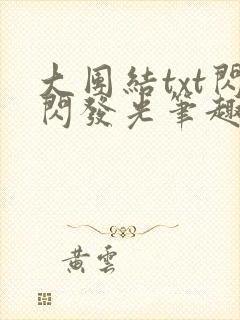 大團結txt閃
閃發光筆趣
黃雲